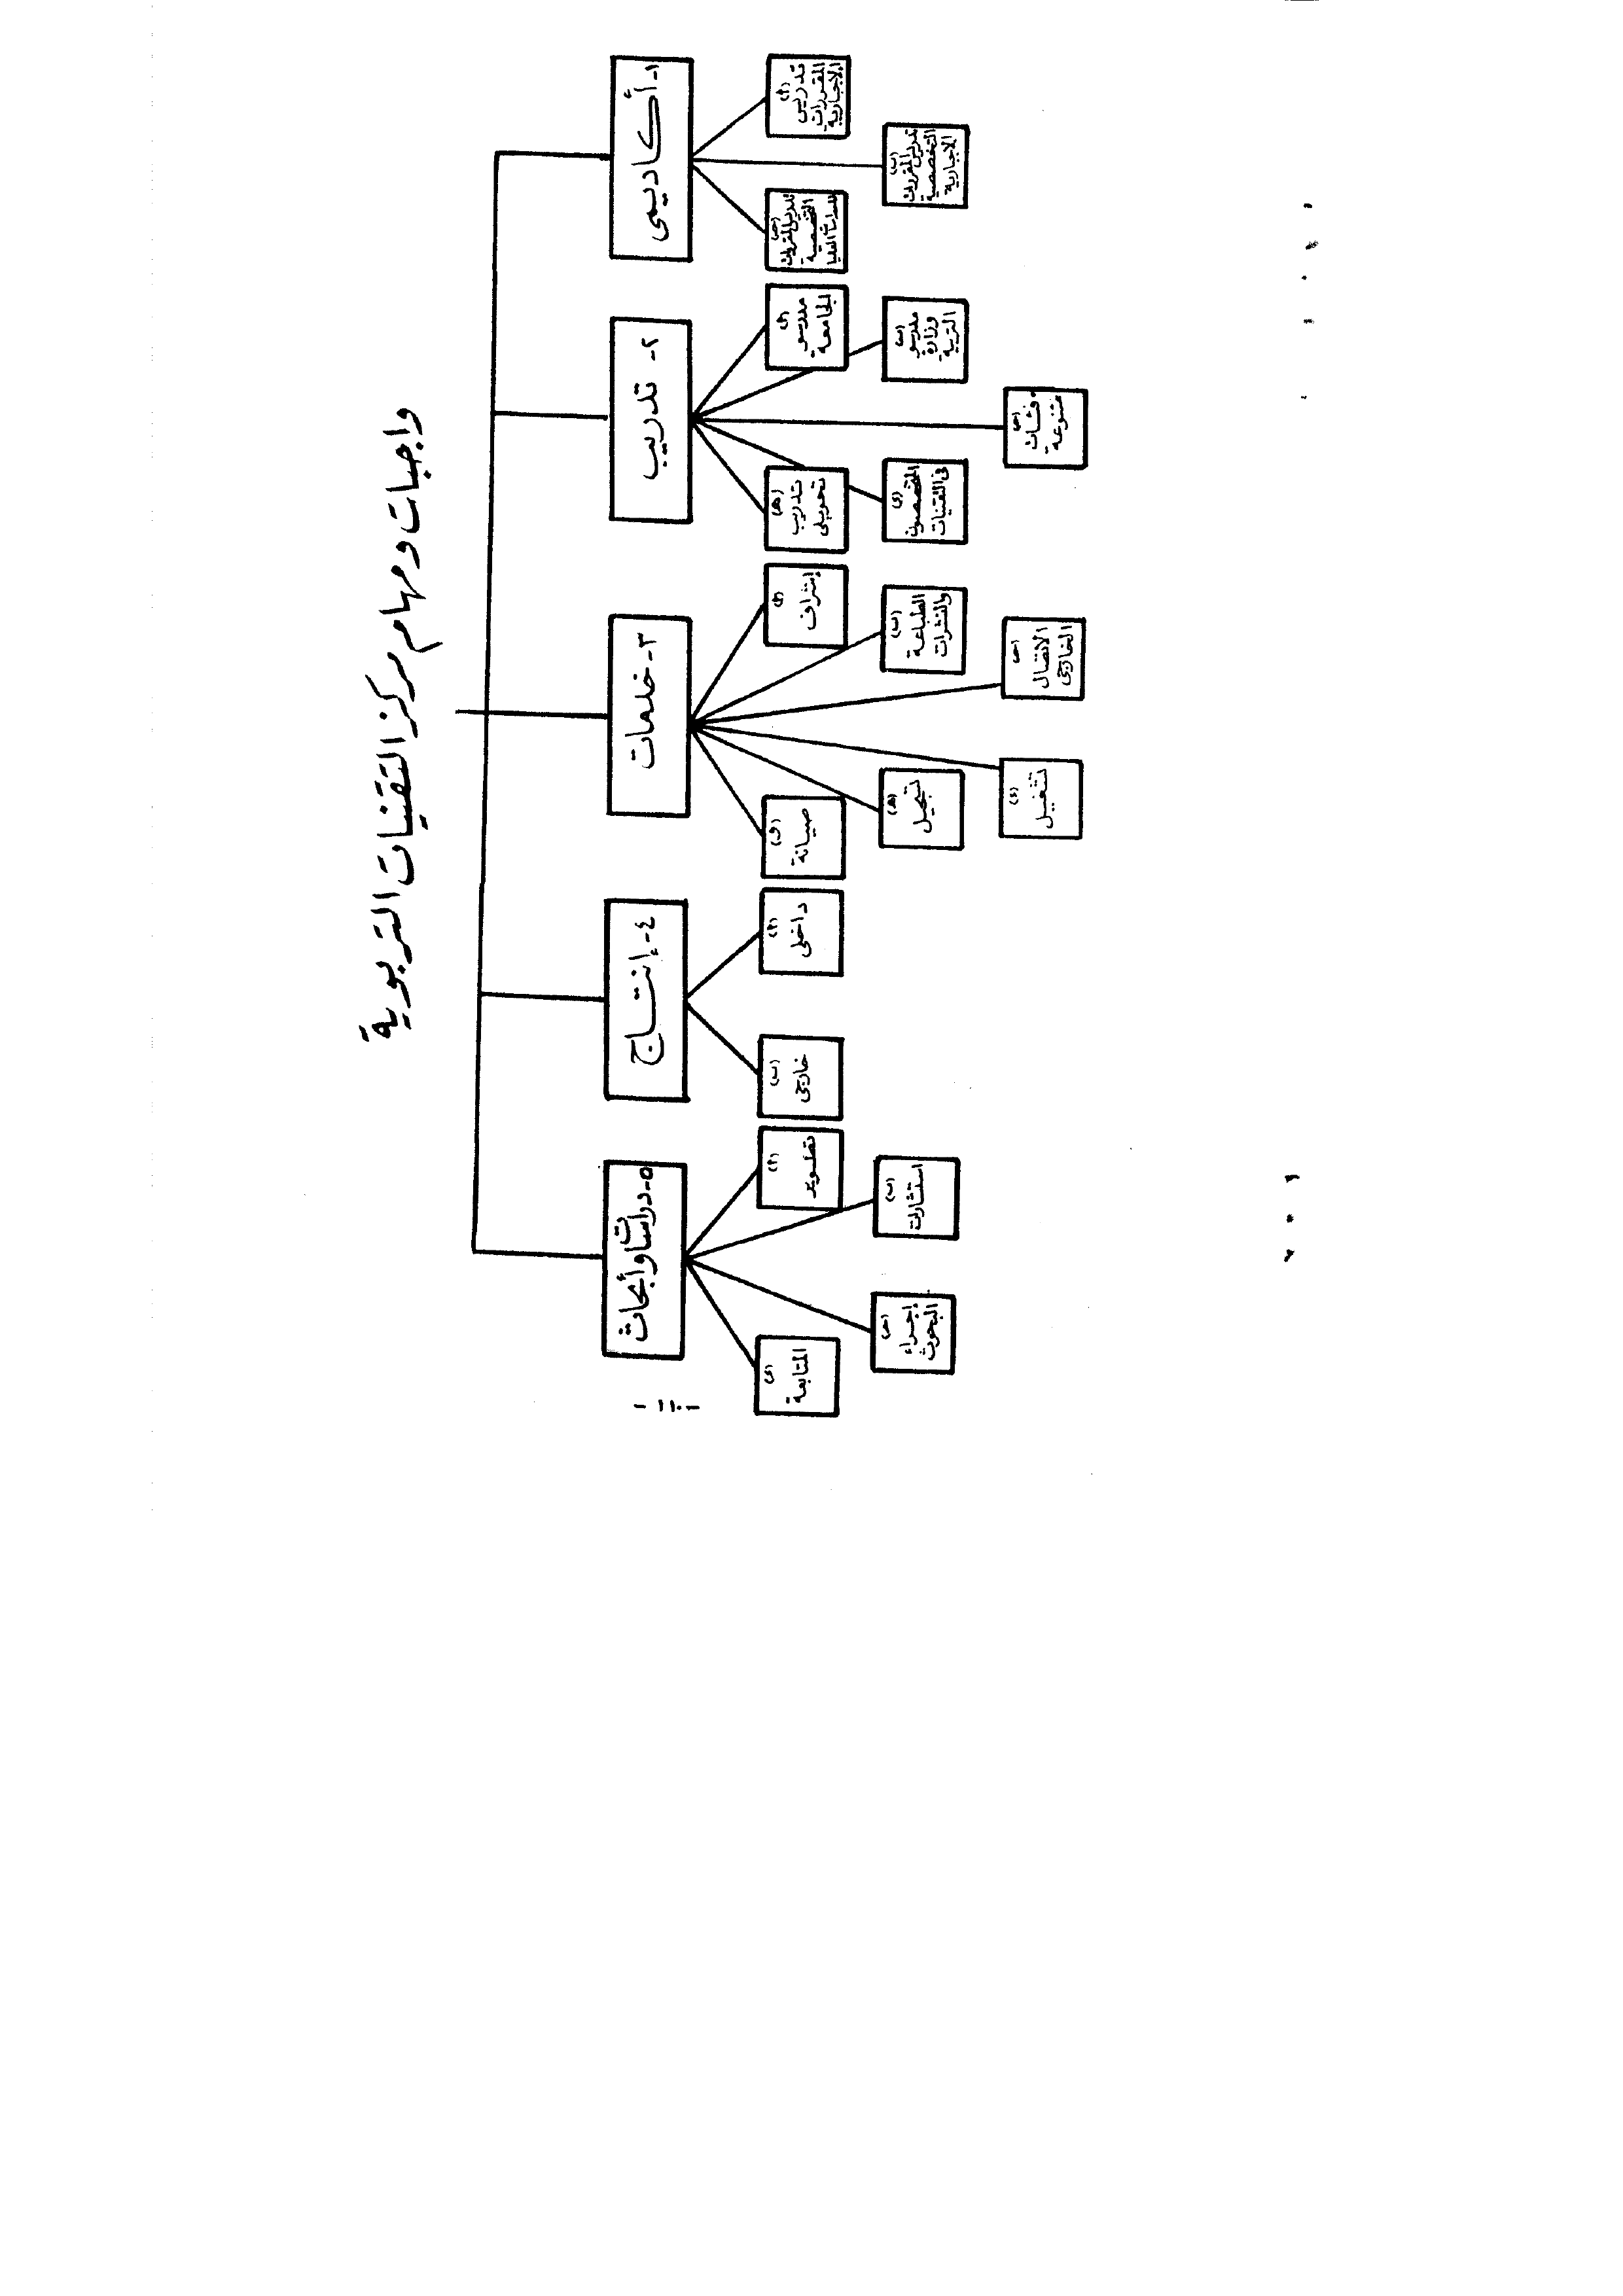 واجبات ومهام مركز التقنيات التربوية
١- أكاديمى
(أ)
تدريس
المقررات
الاجبارية
(ب)
تدريس المقررات
التخصصية
الاجبارية
(ح)
تدريس المقررات
التخصصية
العليا
٢- تدريب
(أ)
مدرسو
الجامعة
(ب)
مدرسو
وزارة
التربية
(ح)
فئات
متنوعة
(د)
المختصون
فى التقنيات
(ه)
تدريب
تحويلى
٣- خدمات
(أ)
إشراف
(ب)
الطباعة
والنشرات
(ح)
الاتصال
الخارجى
(د)
تشغيل
(ه)
تسجيل
(و)
صيانة
٤- إنتاج
(أ)
داخلى
(ب)
خارجى
٥- دراسات وأبحاث
(أ)
تطوير
(ب)
استشارات
(ح)
إجراء
البحوث
(د)
المتابعة